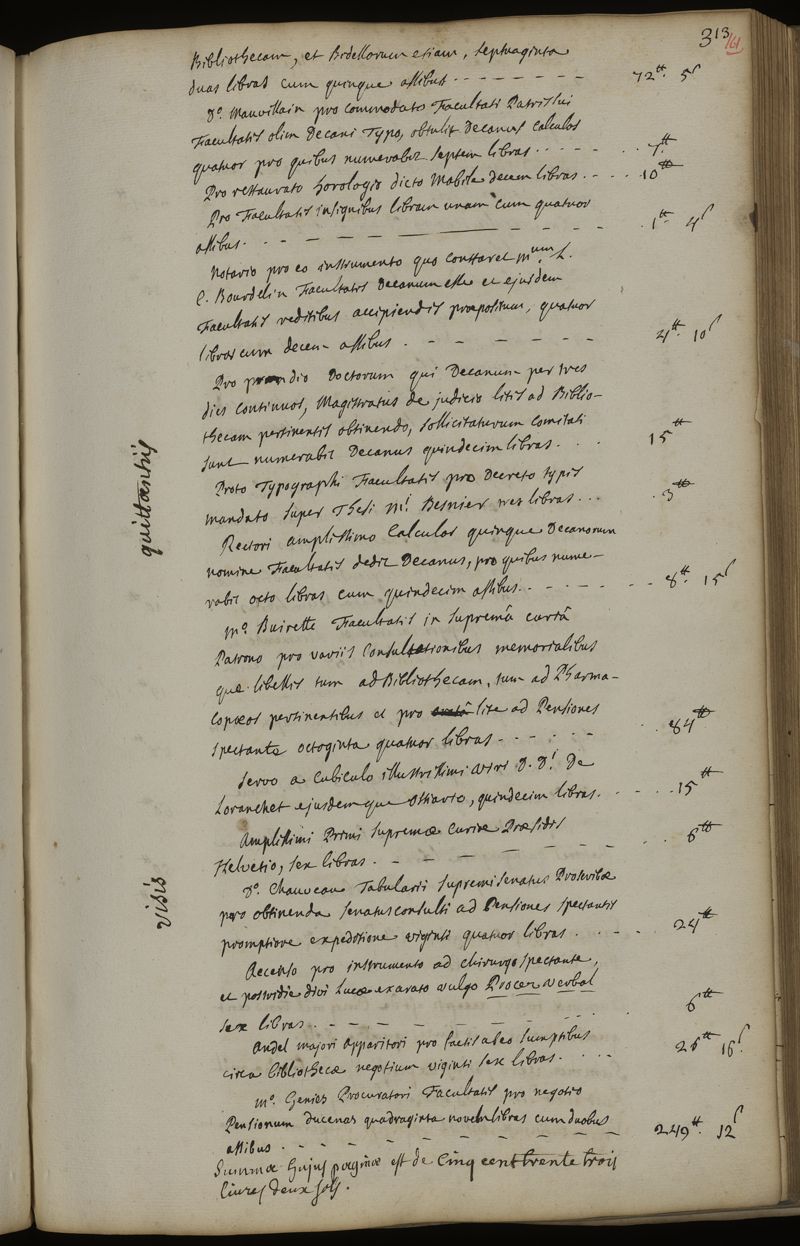 313
161
Bibliothecam, et Bidellorum etiam, septuaginta
duas libras cum quinque assibus - - - - - - - 72tt. 5s
Do. Mauvillain pro commodato Facultati Patris sui
Facultatis olim Decani Typo, obtulit Decanus calculos
quatuor pro quibus numerabit septem libras . . . . . 7tt
Pro restaurato horologio dicto Mobile decem libras . - . . 10tt
Pro Facultatis insignibus libram unam cum quatuor
assibus . - - - - 1tt. 4s
Notario pro eo instrumento quo constaret Mum. L.
C. Bourdelin Facultatis Decanum esse et ejusdem
Facultatis reditibus accipiendis praepositum, quatuor
libras cum decem assibus . - - - - - - 4tt. 10s
Pro prandio Doctorum qui Decanum per tres
dies continuos, Magistratus de judicio litis ad Biblio-
thecam pertinentis obtinendo, sollicitaturum comitati
sunt numerabit Decanus quindecim libras . . . 15tt
Proto Typographi Facultatis pro Decreto typis
mandato super Thesi Mi. Besnier tres libras . . . 3tt
quittantiis
Rectori amplissimo Calculos quinque Decanorum
nomine Facultatis dedit Decanus, pro quibus nume-
rabit octo libras cum quindecim assibus . - - - - - 8tt. 15s
Mo. Buirette Facultatis in supremâ curiâ
Patrono pro variis consultationibus memorialibus
que libellis tum ad Bibliothecam, tum ad Pharma-
copoeos pertinentibus et pro lite ad Pensiones
spectante octoginta quatuor libras - - - - - 84tt
Servo a cubiculo illustrissimi viri D. Di. De
Loranchet ejusdemque ostiario, quindecim libras . - . . 15tt
Amplissimi Primi supremae curiae Praesidis
Helvetio, sex libras . - - - - - - 6tt
visis
Do. Chauveau Tabularii supremi senatus
pro obtinenda senatusconsulti ad Pensiones spectantis
promptiore expeditione viginti quatuor libras . - - - 24tt
Accenso pro instrumento ad chirurgos spectante,
et postridie divi Lucae exarato vulgo Procez verbal
sex libras . - - - - - 6tt
Andel majori Apparitori pro factis ab eo sumptibus
circa bibliothecae negotium viginti sex libras . . . . 26tt 16s.
Mo. Genies Procuratori Facultatis pro negotio
Pensionum ducenas quadraginta novem libras cum duobus
assibus . - - - - - - - - - - 249tt. 12s
Summa hujus paginae est de Cinq cent trente trois
livres deux sols.